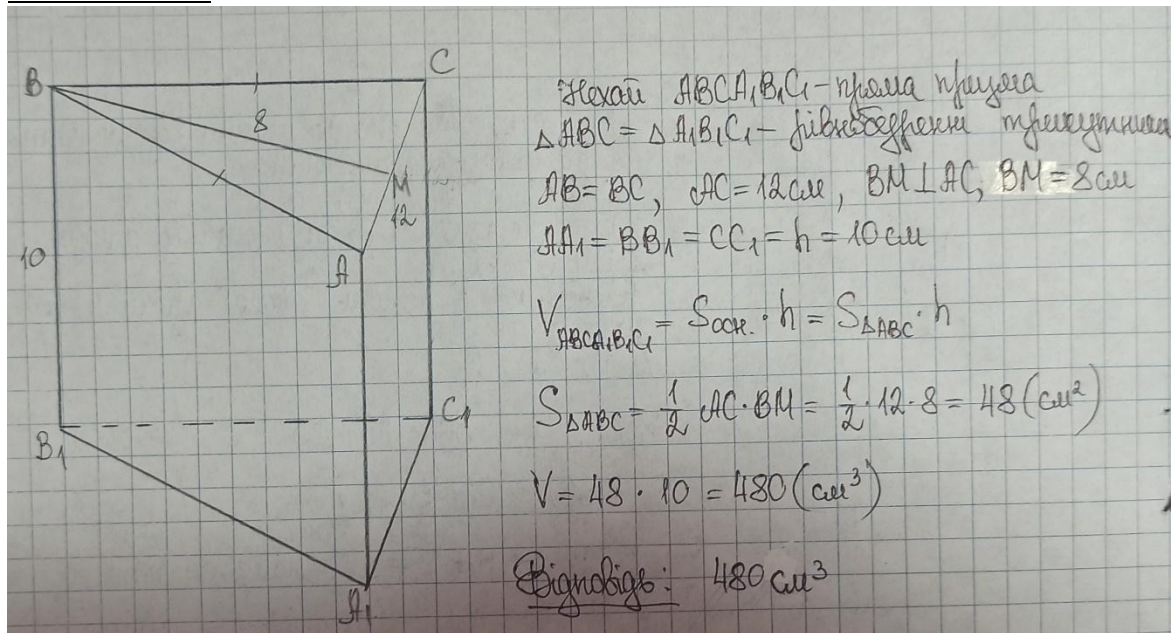 B
C
8
M
12
10
A
B₁
C₁
A₁
Нехай ABCA₁B₁C₁ - пряма призма
△ABC = △A₁B₁C₁ - рівнобедренні трикутники
AB = BC, AC = 12 см, BM ⊥ AC, BM = 8 см
AA₁ = BB₁ = CC₁ = h = 10 см
V_ABCA₁B₁C₁ = Sосн. · h = S△ABC · h
S△ABC = 1/2 AC · BM = 1/2 · 12 · 8 = 48 (см²)
V = 48 · 10 = 480 (см³)
Відповідь: 480 см³